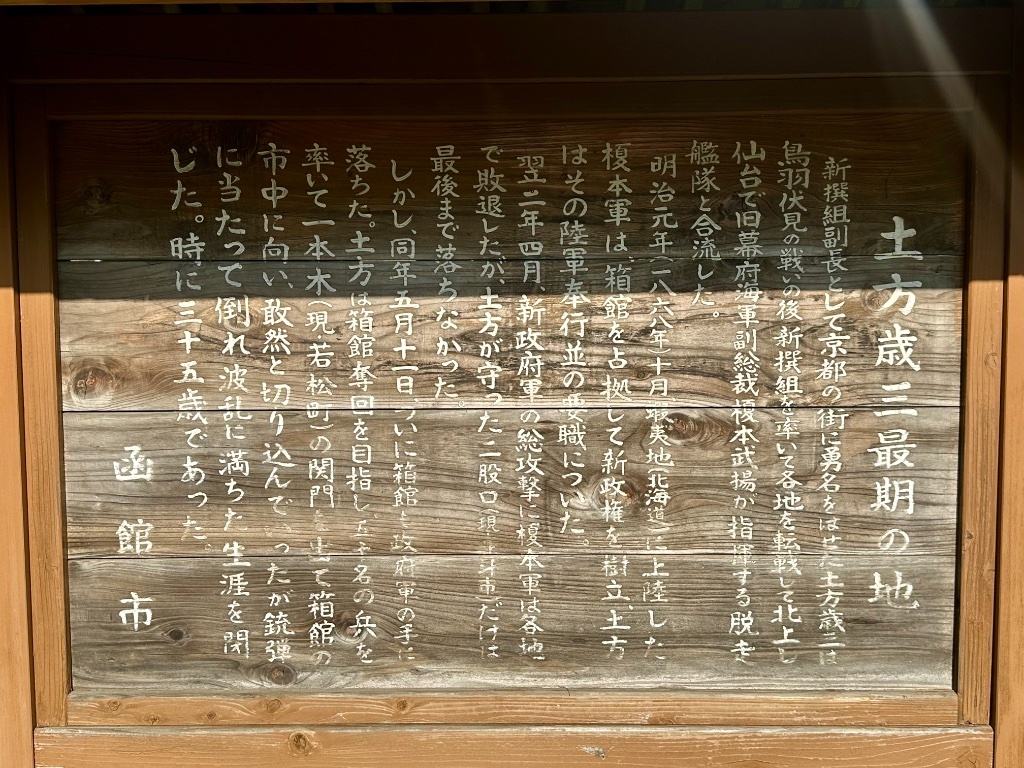 土方歳三最期の地
新撰組副長として京都の街に勇名をはせた土方歳三は
鳥羽伏見の戦いの後新撰組を率いて各地を転戦して北上し
仙台で旧幕府海軍副総裁榎本武揚が指揮する脱走
艦隊と合流した。
明治元年(一八六八年)十月蝦夷地(北海道)に上陸した
榎本軍は、箱館を占拠して新政権を樹立、土方
はその陸軍奉行並の要職についた。
翌二年四月、新政府軍の総攻撃に榎本軍は各地
で敗退したが、土方が守った二股口(現 斗市)だけは
最後まで落ちなかった。
しかし、同年五月十一日、ついに箱館も政府軍の手に
落ちた。土方は箱館奪回を目指し 名の兵を
率いて一本木(現若松町)の関門を出て箱館の
市中に向い、敢然と切り込んで ったが銃弾
に当たって倒れ波乱に満ちた生涯を閉
じた。時に三十五歳であった。
函館市